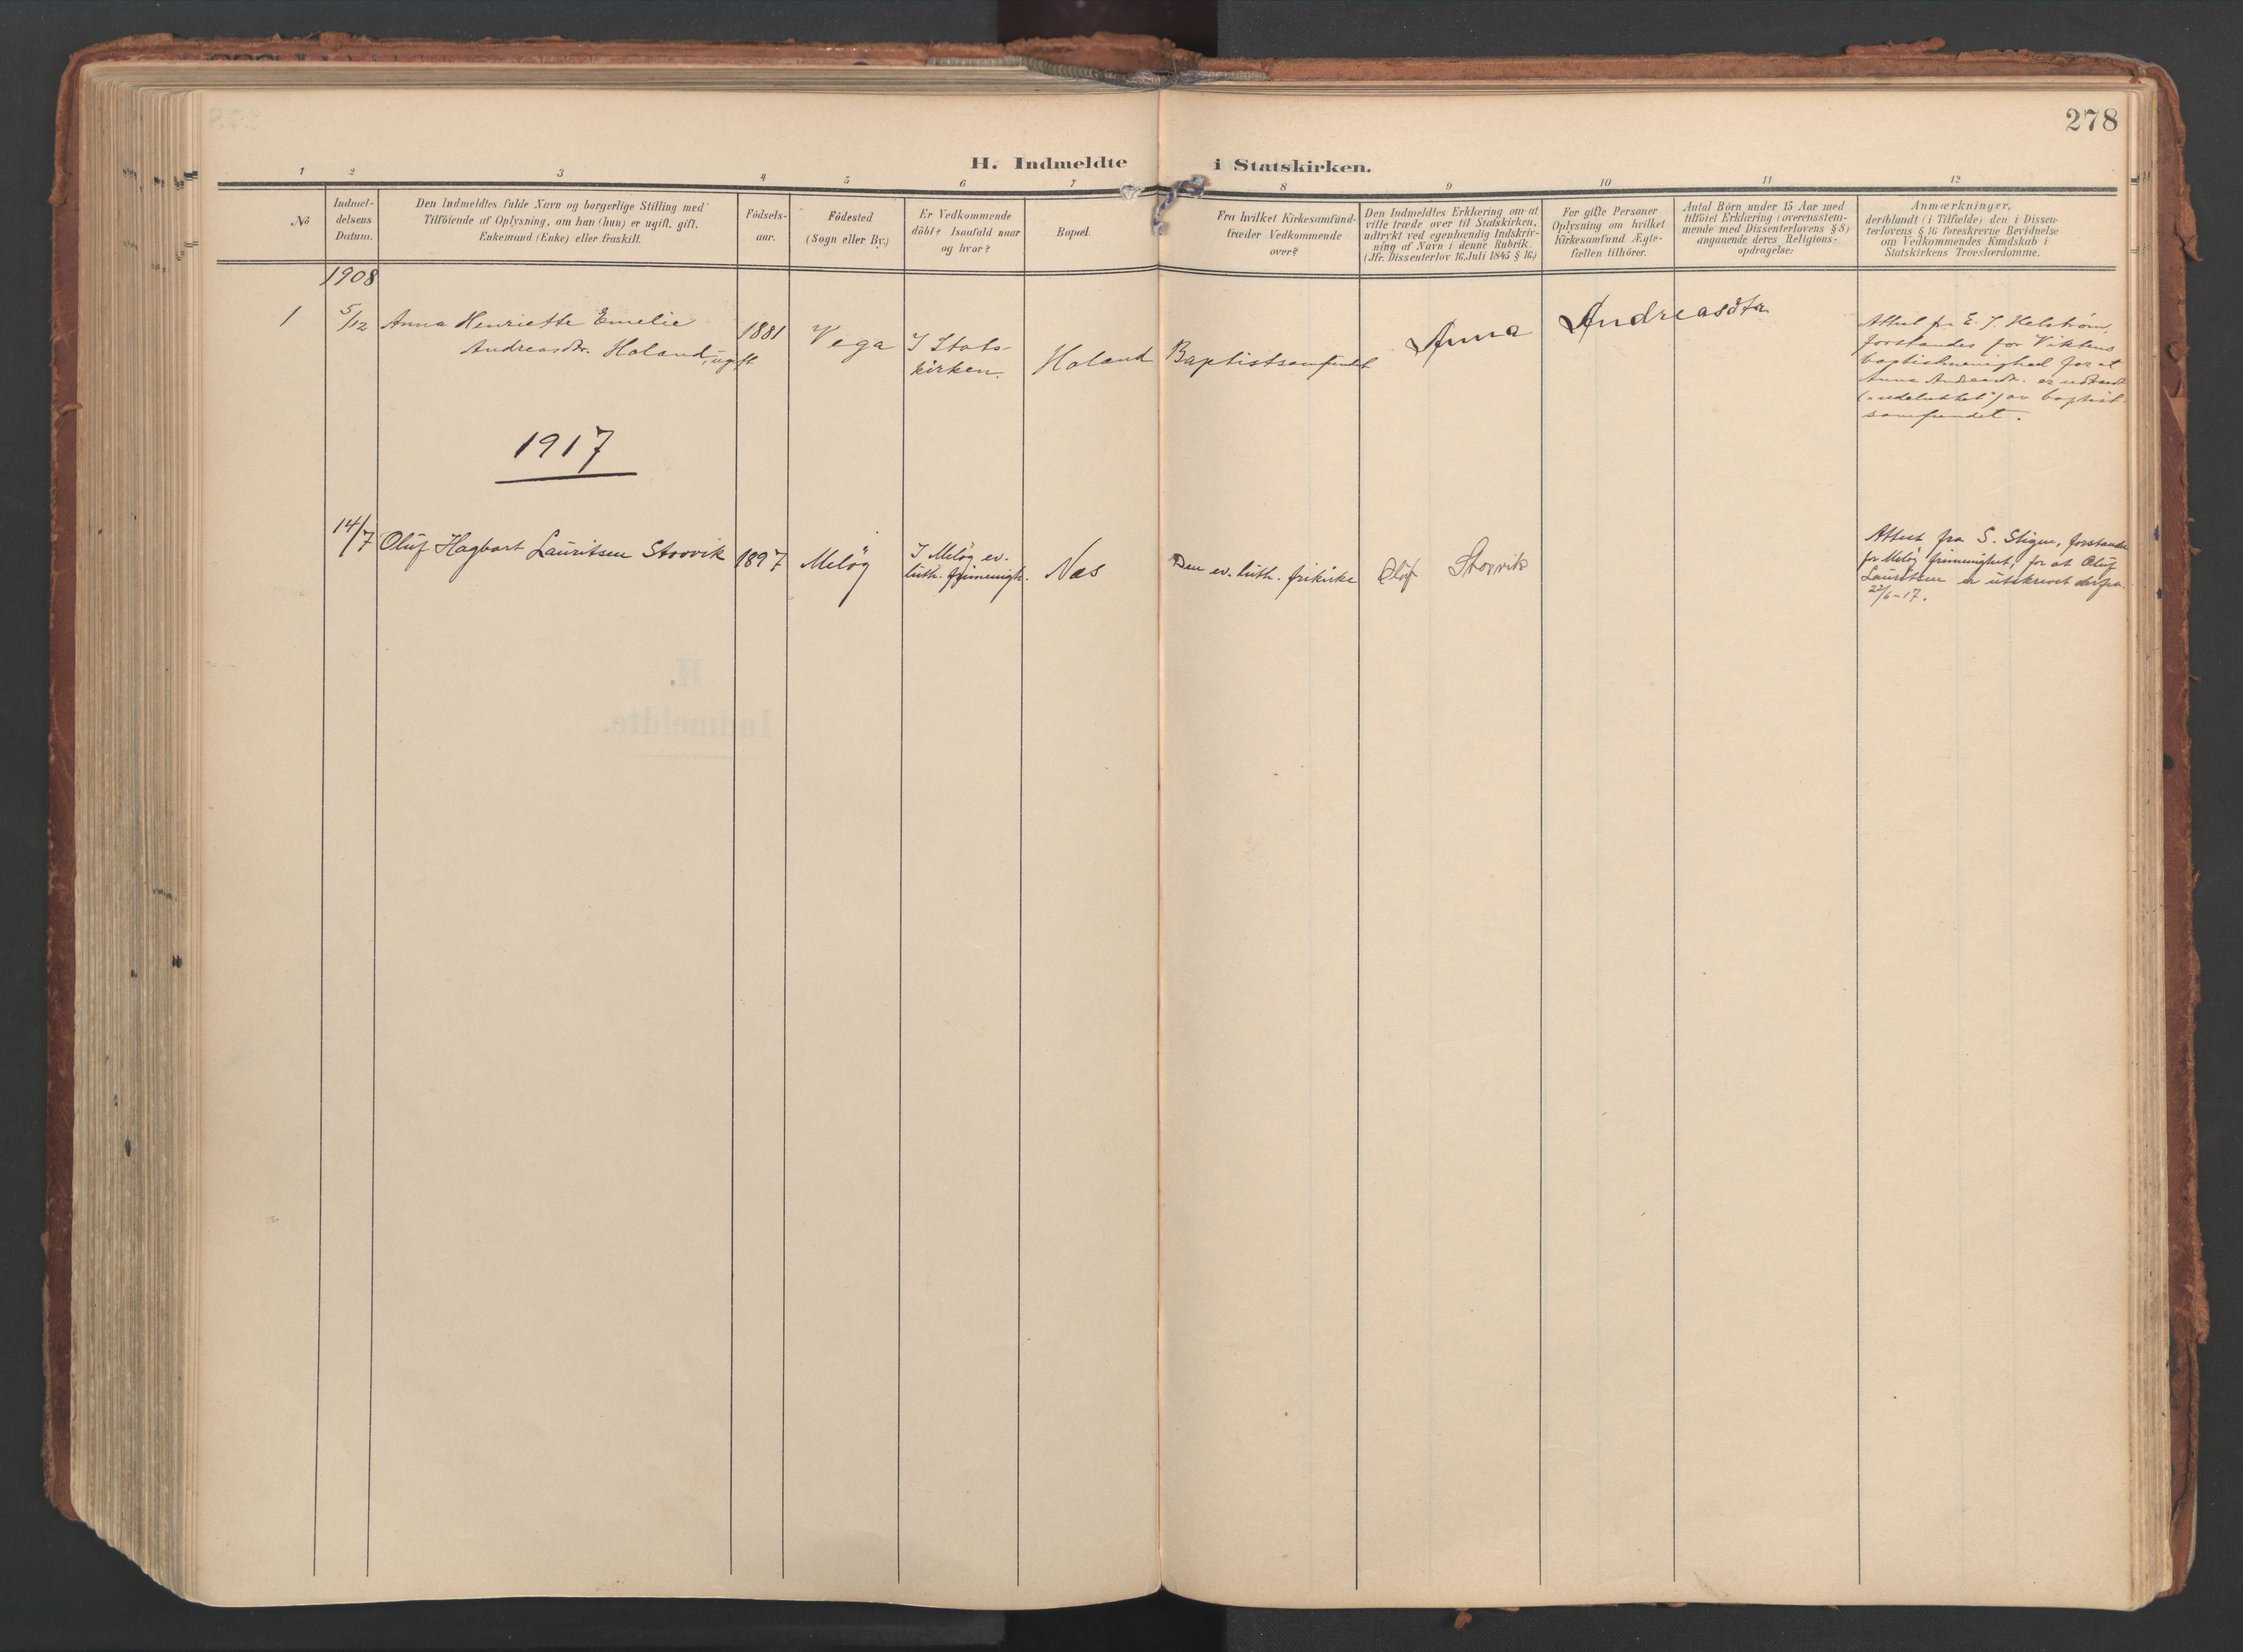 278
H. Indmeldte i Statskirken.
1 2 3 4 5 6 7 8 9 10 11 12
No
Indmel-
delsens
Datum.
Den Indmeldtes fulde Navn og borgerlige Stilling med
Tilföiende af Oplysning, om han (hun) er ugift, gift,
Enkemand (Enke) eller fraskilt.
Födsels-
aar.
Födested
(Sogn eller By.)
Er Vedkommende
döbt? Isaafald naar
og hvor?
Bopæl.
Fra hvilket Kirkesamfund
træder Vedkommende
over?
Den Indmeldtes Erklæring om at
ville træde over til Statskirken,
udtrykt ved egenhændig Indskriv-
ning af Navn i denne Rubrik.
(Jfr. Dissenterlov 16. Juli 1845 § 16.)
For gifte Personer
Oplysning om hvilket
Kirkesamfund Ægte-
fællen tilhörer.
Antal Börn under 15 Aar med
tilföiet Erklæring (overensstem-
mende med Dissenterlovens § 8)
angaaende deres Religions-
opdragelse.
Anmærkninger,
deriblandt (i Tilfælde) den i Dissen-
terlovens § 16 foreskrevne Bevidnelse
om Vedkommendes Kundskab i
Statskirkens Troeslærdomme.
1908
1
5/12
Anna Henriette Emelie
Andreasdtr. Holand, ugift
1881
Vega
I Stats-
kirken.
Holand
Baptistsamfundet
Anna Andreasdtr
Attest fra E. J. Helstrøm,
forstander for Viktens
baptistmenighed for at
Anna Andreasdtr. er udtraadt
("udelukket") av baptist-
samfundet.
1917
14/7
Oluf Hagbart Lauritsen Storvik
1897
Meløy
I Meløy ev.
luth. frimenigh.
Nes
Den ev. luth. frikirke
Oluf Storvik
Attest fra S. Stigen, forstander
for Meløy frimenighet, for at Oluf
Lauritsen er utskrevet derfra
22/6-17.